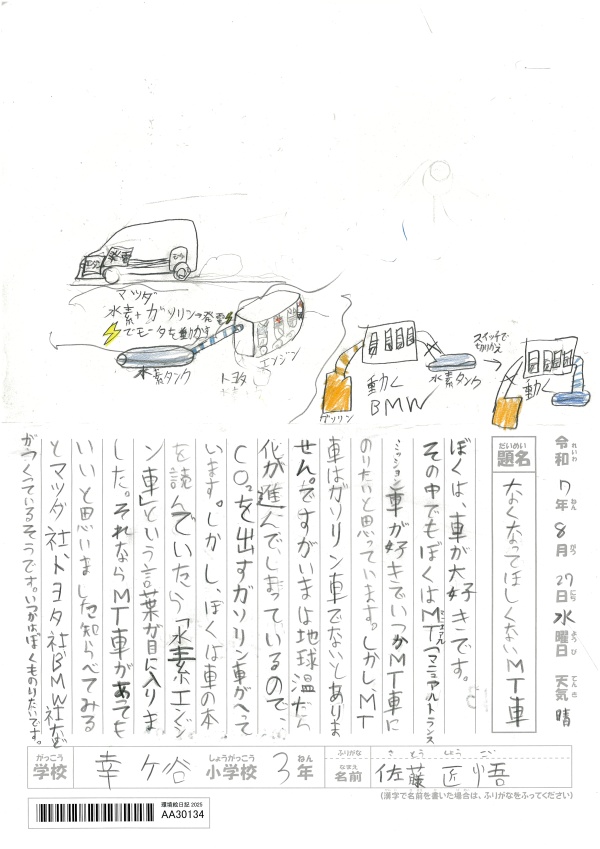 エンジン
水素
電
モーター
マツダ
水素+ガソリン→発電
でモータを動かす
水素タンク
トヨタ
エンジン
ガソリン
動く
BMW
水素タンク
スイッチで
切りかえ
動く
令和7年8月27日水曜日 天気 晴
れいわ ねん がつ にち ようび てんき
だいめい
題名
なくなってほしくないMT車
ぼくは、車が大好きです。
その中でもぼくはMT(マニュアルトランス
ミッション)車が好きでいつかMT車に
のりたいと思っています。しかし、MT
車はガソリン車でないとありま
せん。ですがいまは地球温だん
化が進んでしまっているので、
CO₂を出すガソリン車がへって
います。しかし、ぼくは車の本
を読んでいたら「水素エンジ
ン車」という言葉が目に入りま
した。それならMT車があっても
いいと思いました。知らべてみる
とマツダ社、トヨタ社、BMW社など
がつくっているそうです。いつかはぼくものりたいです。
がっこう しょうがっこう ねん
学校 幸ケ谷 小学校 3年
ふりがな さ とう しょう ご
なまえ
名前 佐藤 匠悟
(漢字で名前を書いた場合は、ふりがなをふってください)
環境絵日記 2025
AA30134